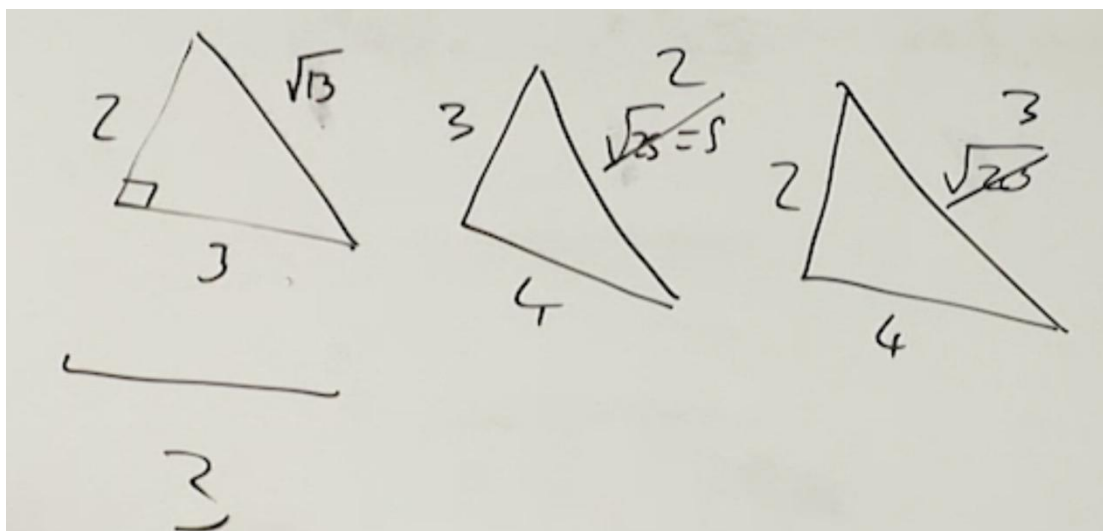 2
√13
3
3
2
√25 = 5
4
2
3
√20
4
3